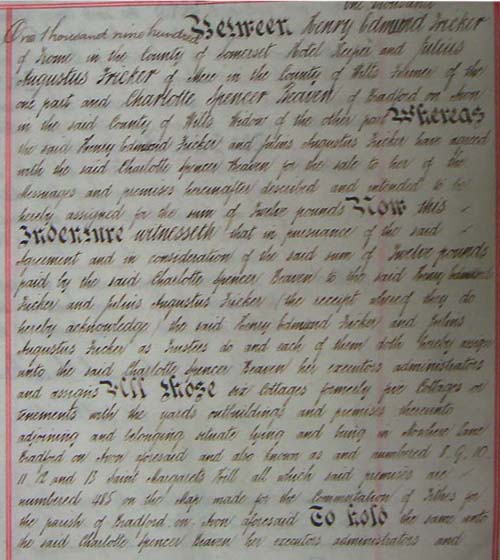 one thousand
One thousand nine hundred Between Henry Edmund Fricker
of Frome in the County of Somerset Hotel Keeper and Julius
Augustus Fricker of Mere in the County of Wilts Farmer of the
one part and Charlotte Spencer Beaven of Bradford on Avon
in the said County of Wilts Widow of the other part Whereas
the said Henry Edmund Fricker and Julius Augustus Fricker have agreed
with the said Charlotte Spencer Beaven for the sale to her of the
Messuages and premises hereinafter described and intended to be
hereby assigned for the sum of Twelve pounds Now this
Indenture witnesseth that in pursuance of the said
Agreement and in consideration of the said sum of Twelve pounds
paid by the said Charlotte Spencer Beaven to the said Henry Edmund
Fricker and Julius Augustus Fricker (the receipt whereof they do
hereby acknowledge) the said Henry Edmund Fricker and Julius
Augustus Fricker as Trustees do and each of them doth hereby assign
unto the said Charlotte Spencer Beaven her executors administrators
and assigns All those six Cottages formerly five Cottages or
tenements with the yards outbuildings and premises thereunto
adjoining and belonging situate lying and being in Lane
Bradford on Avon aforesaid and also known as and numbered 8. 9. 10.
11. 12 and 13 Saint Margarets Hill all which said premises are
numbered 485 on the Map made for the Commutation of Tithes for
the parish of Bradford on Avon aforesaid To hold the same unto
the said Charlotte Spencer Beaven her executors administrators and